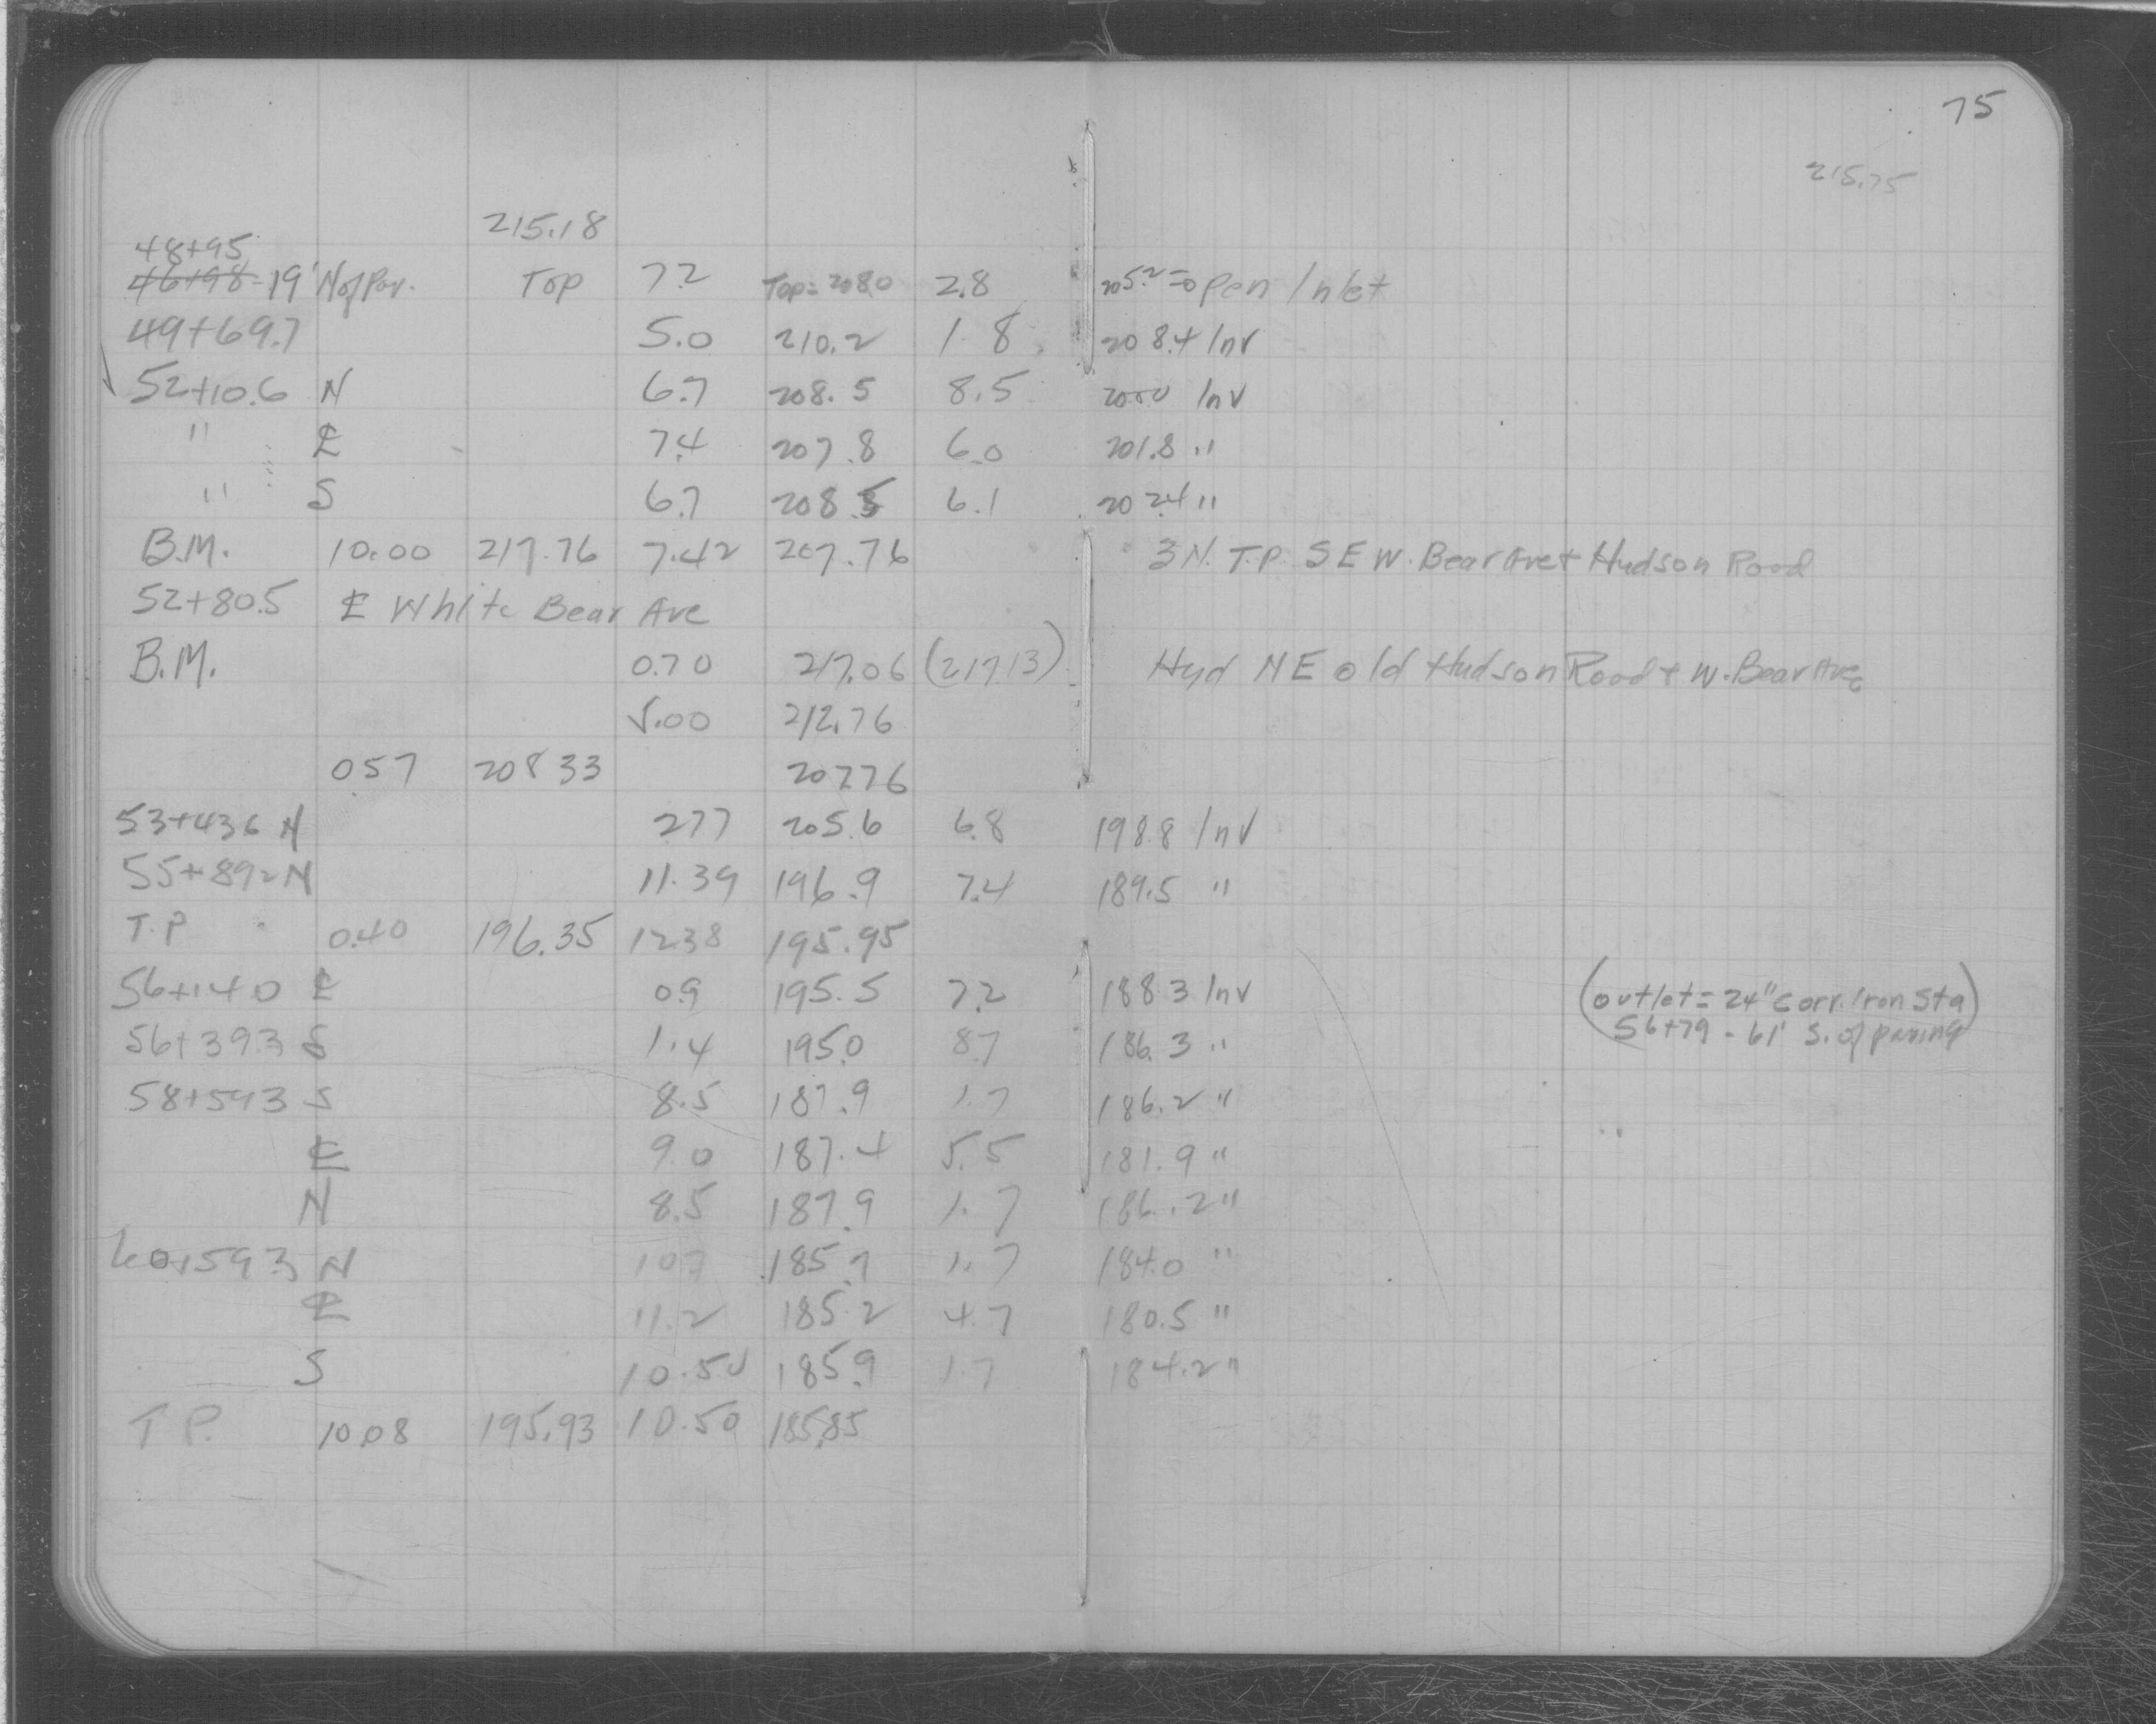 75
215.75
215.18
48+95
46+98-19' N of Pav. Top 7.2 Top=208.0 2.8 205.2=open Inlet
49+69.7 5.0 210.2 1.8 208.4 Inv
52+10.6 N 6.7 208.5 8.5 200.0 Inv
" ℄ 7.4 207.8 6.0 201.8 "
" S 6.7 208.5 6.1 202.4 "
B.M. 10.00 217.76 7.42 207.76 3 N. T.P. S E W. Bear Ave + Hudson Road
52+80.5 ℄ White Bear Ave
B.M. 0.70 217.06 (217.13) Hyd N E old Hudson Road + W. Bear Ave
5.00 212.76
0.57 208.33 207.76
53+43.6 N 2.77 205.6 6.8 198.8 Inv
55+89.2 N 11.39 196.9 7.4 189.5 "
T.P 0.40 196.35 12.38 195.95
56+14.0 ℄ 0.9 195.5 7.2 188.3 Inv (outlet = 24" Corr. Iron Sta
56+39.3 S 1.4 195.0 8.7 186.3 " 56+79 - 61' S. of paving)
58+59.3 S 8.5 187.9 1.7 186.2 "
℄ 9.0 187.4 5.5 181.9 "
N 8.5 187.9 1.7 186.2 "
60+59.3 N 10.7 185.7 1.7 184.0 "
℄ 11.2 185.2 4.7 180.5 "
S 10.50 185.9 1.7 184.2 "
T P. 10.08 195.93 10.50 185.85